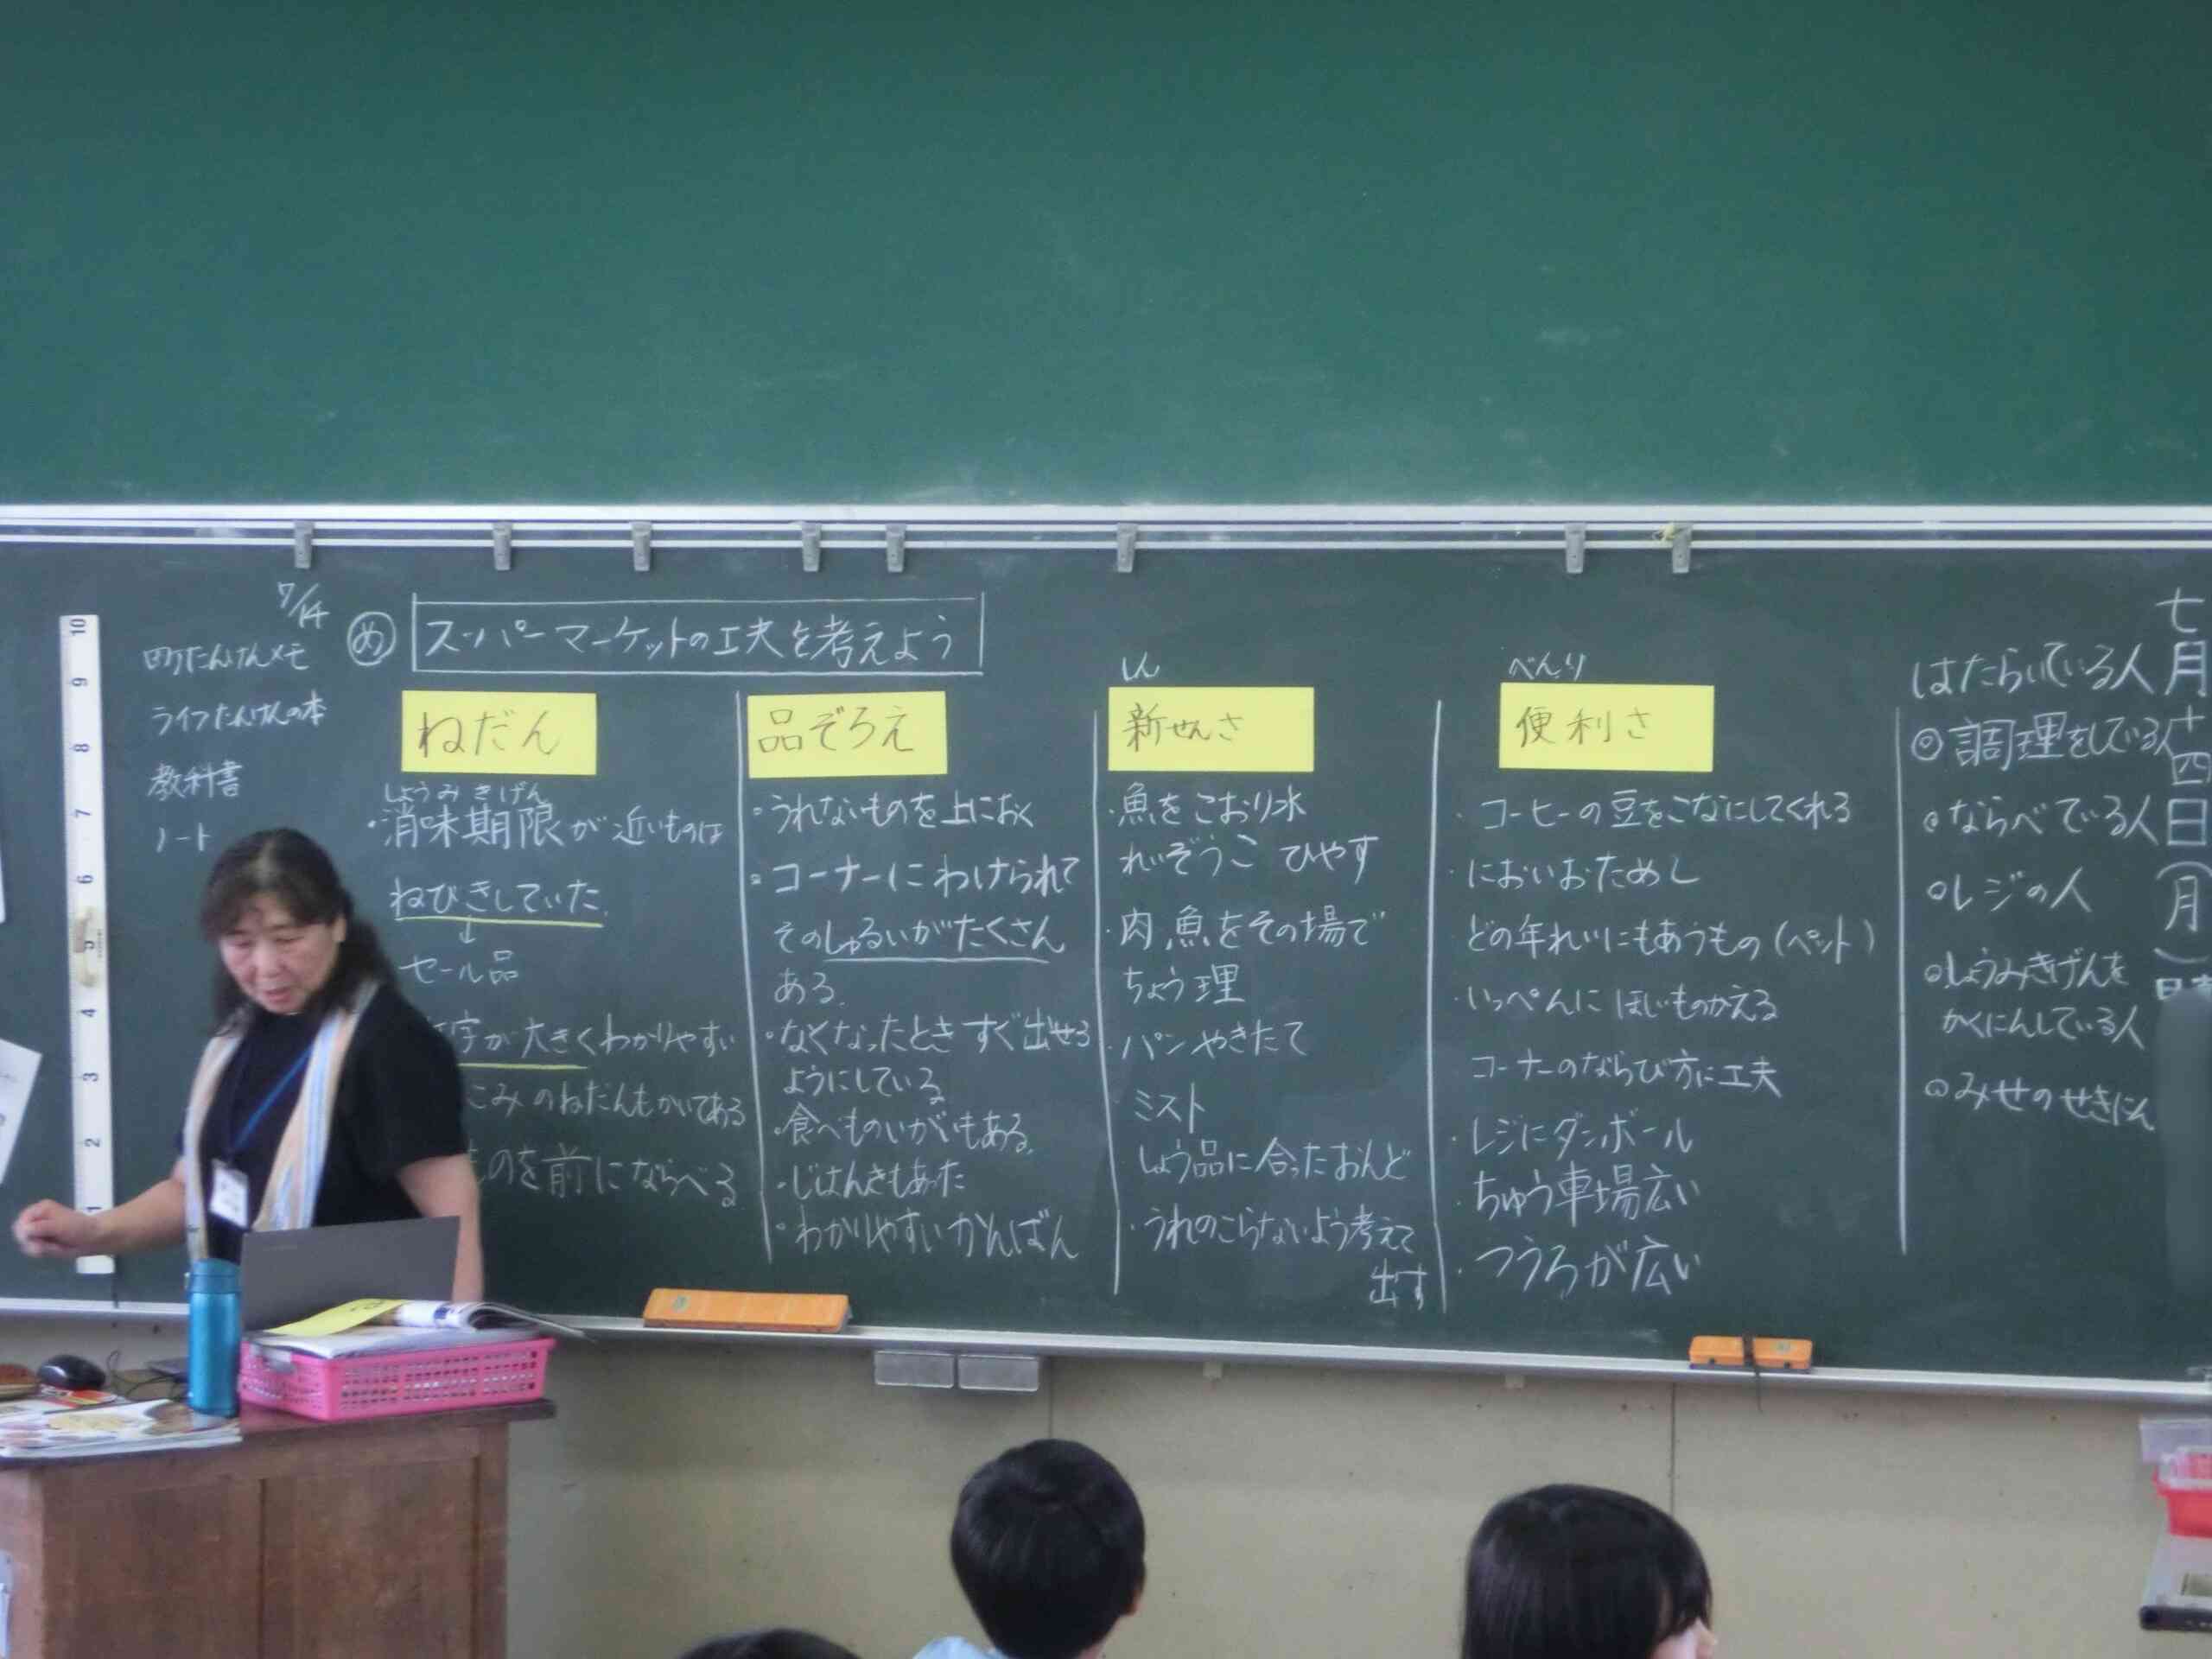 7/14
町たんけんメモ
ライフたんけんの本
教科書
ノート
め
スーパーマーケットの工夫を考えよう
ねだん
しょうみきげん
・消味期限が近いものは
ねびきしていた
↓
セール品
字が大きくわかりやすい
こみのねだんもかいてある
ものを前にならべる
品ぞろえ
・うれないものを上におく
・コーナーにわけられて
そのしゅるいがたくさん
ある。
・なくなったときすぐ出せる
ようにしている
・食べものいがいもある。
・じはんきもあった
・わかりやすいかんばん
しん
新せんさ
・魚をこおり水
れいぞうこ ひやす
・肉、魚をその場で
ちょう理
・パンやきたて
ミスト
しょう品に合ったおんど
・うれのこらないよう考えて
出す
べんり
便利さ
・コーヒーの豆をこなにしてくれる
・においおためし
どの年れいにもあうもの(ペット)
・いっぺんにほしいものかえる
コーナーのならび方に工夫
・レジにダンボール
・ちゅう車場広い
・つうろが広い
はたらいている人
◎調理をしている人
◎ならべている人
○レジの人
○しょうみきげんを
かくにんしている人
○みせのせきにん
七月十四日(月)
10
9
8
7
6
5
4
3
2
1